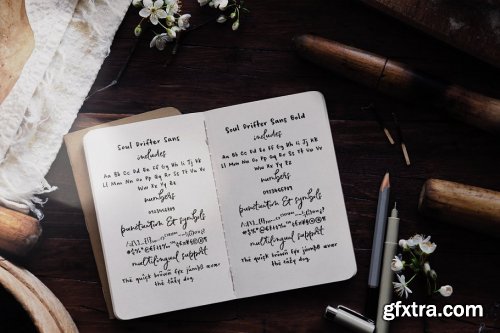 Soul Drifter Sans
includes
Aa Bb Cc Dd Ee Ff Gg Hh Ii Jj Kk
Ll Mm Nn Oo Pp Qq Rr Ss Tt Uu Vv
Ww Xx Yy Zz
numbers
0123456789
punctuation & symbols
multilingual support
Soul Drifter Sans Bold
includes
Aa Bb Cc Dd Ee Ff Gg Hh Ii Jj Kk
Ll Mm Nn Oo Pp Qq Rr Ss Tt Uu Vv
Ww Xx Yy Zz
numbers
0123456789
punctuation & symbols
multilingual support
gfxtra.com